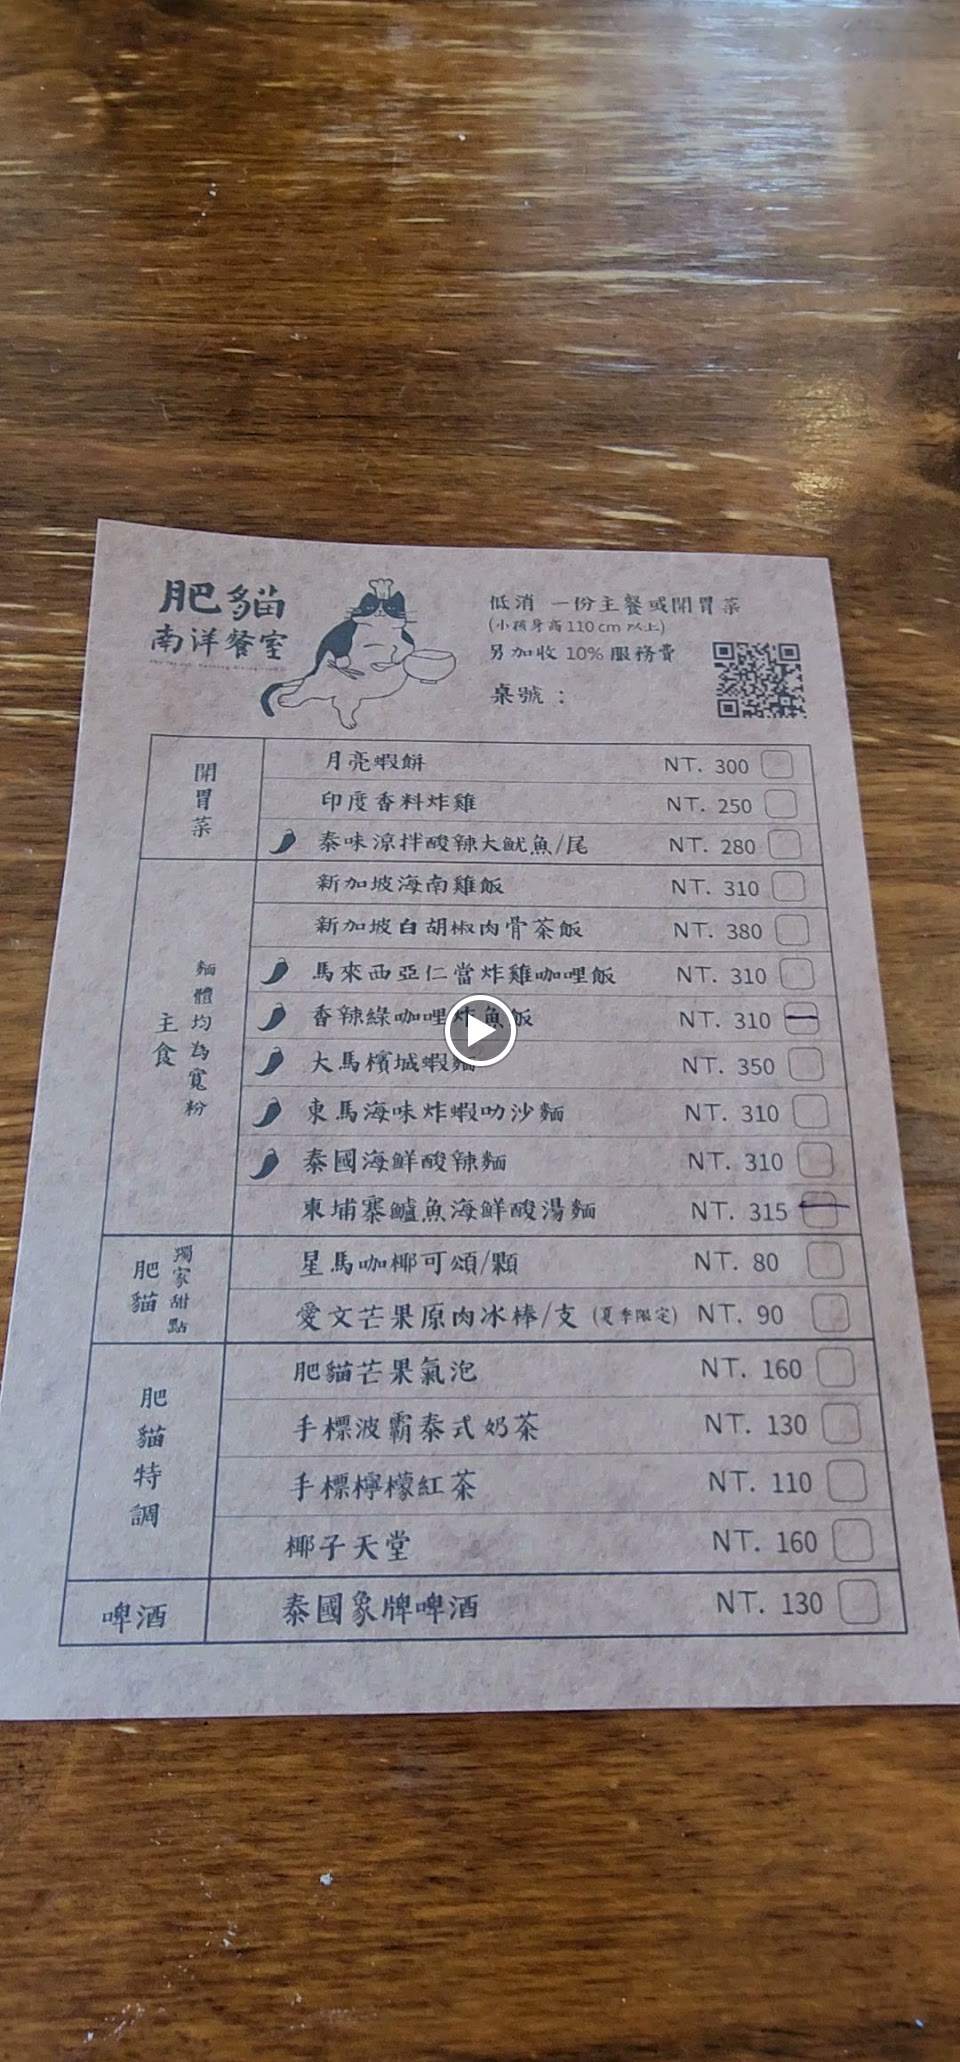 肥貓
南洋餐室
低消 一份主餐或開胃菜
(小孩身高110cm以上)
另加收 10% 服務費
桌號：
開胃菜
月亮蝦餅 NT. 300
印度香料炸雞 NT. 250
泰味涼拌酸辣大魷魚/尾 NT. 280
主食
麵體均為寬粉
新加坡海南雞飯 NT. 310
新加坡白胡椒肉骨茶飯 NT. 380
馬來西亞仁當炸雞咖哩飯 NT. 310
香辣綠咖哩炸魚飯 NT. 310
大馬檳城蝦麵 NT. 350
東馬海味炸蝦叻沙麵 NT. 310
泰國海鮮酸辣麵 NT. 310
柬埔寨鱸魚海鮮酸湯麵 NT. 315
肥貓
獨家甜點
星馬咖椰可頌/顆 NT. 80
愛文芒果原肉冰棒/支 (夏季限定) NT. 90
肥貓特調
肥貓芒果氣泡 NT. 160
手標波霸泰式奶茶 NT. 130
手標檸檬紅茶 NT. 110
椰子天堂 NT. 160
啤酒
泰國象牌啤酒 NT. 130